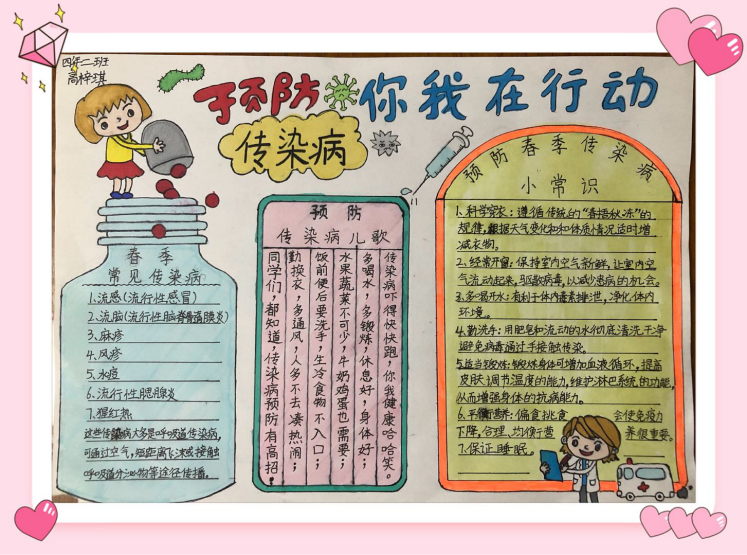 四年二班
高梓琪
预防 你我在行动
传染病
春季
常见传染病
1、流感(流行性感冒)
2、流脑(流行性脑脊髓膜炎)
3、麻疹
4、风疹
5、水痘
6、流行性腮腺炎
7、猩红热
这些传染病大多是呼吸道传染病,
可通过空气,短距离飞沫或接触
呼吸道分泌物等途径传播。
预防
传染病儿歌
同学们，都知道，传染病预防有高招：
勤换衣，多通风，人多不去凑热闹；
饭前便后要洗手，生冷食物不入口；
水果蔬菜不可少，牛奶鸡蛋也需要；
多喝水，多锻炼，休息好，身体好；
传染病吓得快快跑，你我健康哈哈笑。
预防春季传染病
小常识
1、科学穿衣：遵循传统的“春捂秋冻”的
规律,根据天气变化和和体质情况适时增
减衣物。
2、经常开窗：保持室内空气新鲜,让室内空
气流动起来,驱散病毒,以减少患病的机会。
3、多喝开水:有利于体内毒素排泄,净化体内
环境。
4、勤洗手：用肥皂和流动的水彻底清洗干净
避免病毒通过手接触传染。
5、适当锻炼:锻炼身体可增加血液循环,提高
皮肤调节温度的能力,维护淋巴系统的功能,
从而增强身体的抗病能力。
6、平衡营养：偏食挑食 会使免疫力
下降,合理、均衡营 养很重要。
7、保证睡眠。